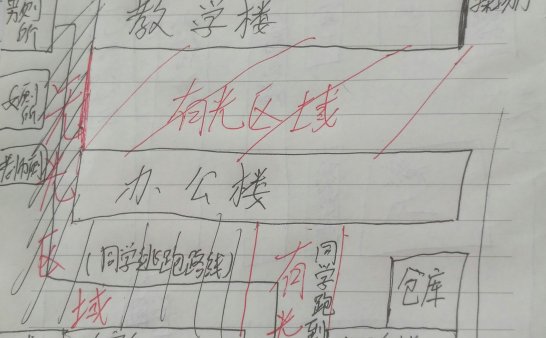 教学楼
男厕所
操场
有光区域
女厕所
老师厕
办公楼
无光区域
(同学逃跑路线)
有光
同学跑到
仓库